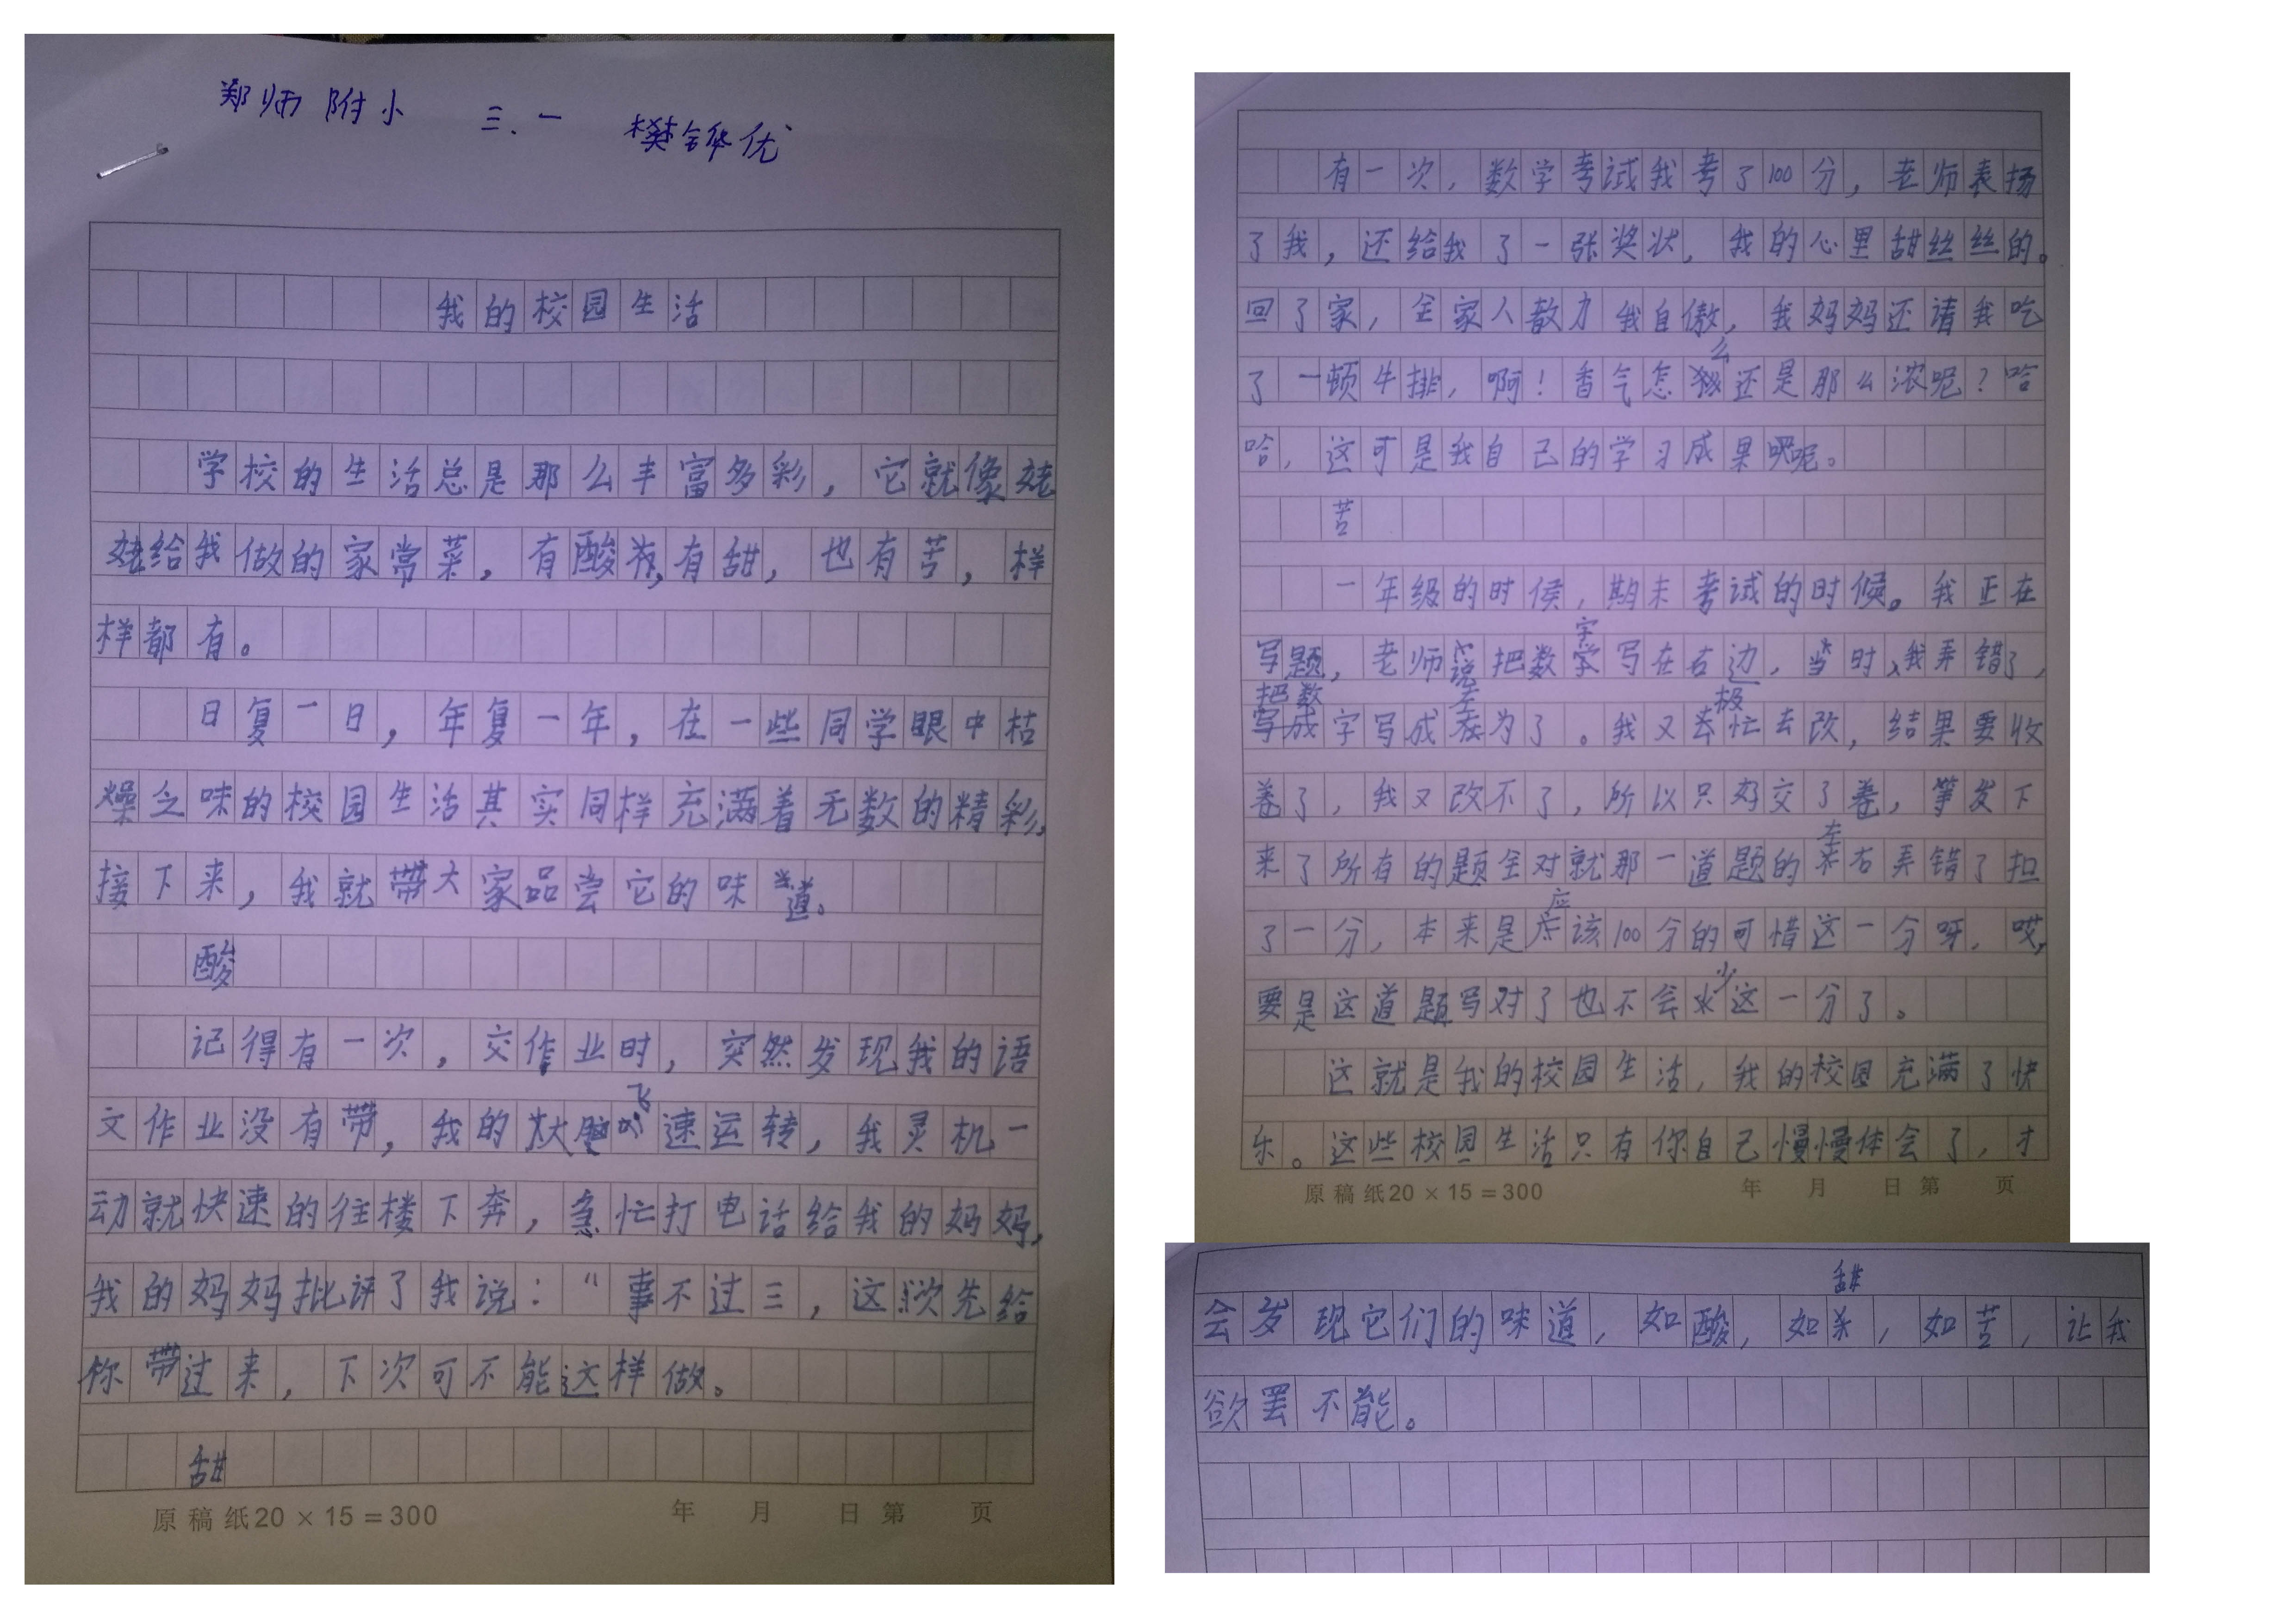 郑师附小 三.一 樊铧优
我的校园生活
学校的生活总是那么丰富多彩，它就像姥
姥给我做的家常菜，有酸，有甜，也有苦，样
样都有。
日复一日，年复一年，在一些同学眼中枯
燥乏味的校园生活其实同样充满着无数的精彩，
接下来，我就带大家品尝它的味道。
酸
记得有一次，交作业时，突然发现我的语
文作业没有带，我的大脑飞速运转，我灵机一
动就快速的往楼下奔，急忙打电话给我的妈妈，
我的妈妈批评了我说：“事不过三，这次先给
你带过来，下次可不能这样做。
甜
原稿纸20×15=300 年 月 日 第 页
有一次，数学考试我考了100分，老师表扬
了我，还给我了一张奖状，我的心里甜丝丝的。
回了家，全家人都为我自傲，我妈妈还请我吃
了一顿牛排，啊！香气怎么还是那么浓呢？哈
哈，这可是我自己的学习成果呢。
苦
一年级的时候，期末考试的时候。我正在
写题，老师说把数字写在右边，当时，我弄错了，
把数字写成左为了。我又极忙去改，结果要收
卷了，我又改不了，所以只好交了卷，等发下
来了所有的题全对就那一道题的左右弄错了扣
了一分，本来是应该100分的可惜这一分呀，哎，
要是这道题写对了也不会少这一分了。
这就是我的校园生活，我的校园充满了快
乐。这些校园生活只有你自己慢慢体会了，才
原稿纸20×15=300 年 月 日 第 页
会发现它们的味道，如酸，如甜，如苦，让我
欲罢不能。